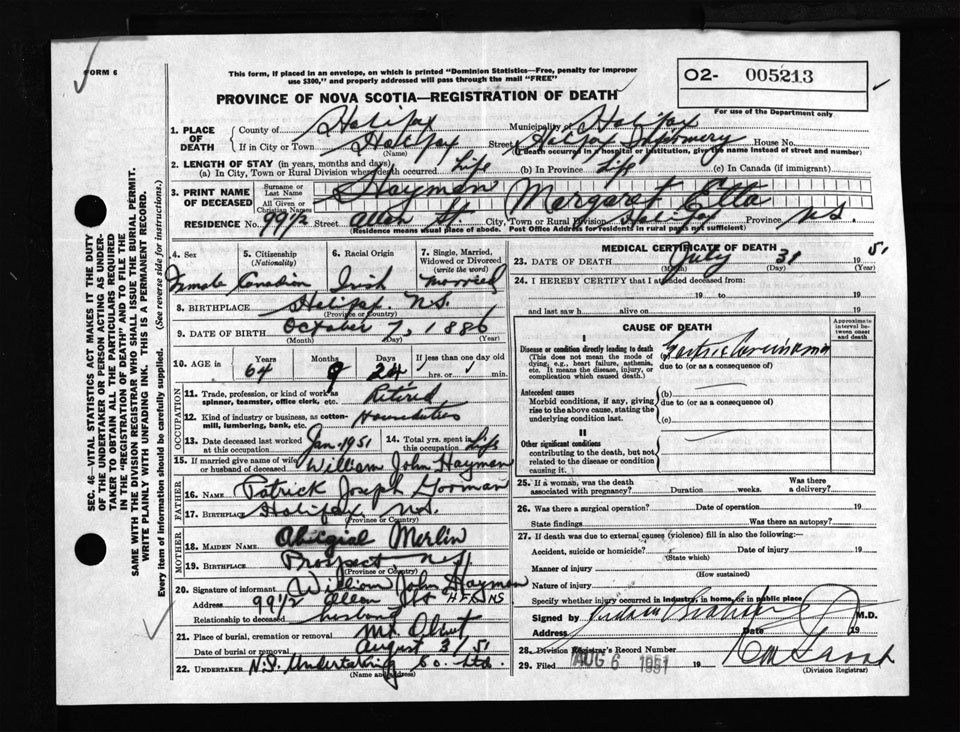 FORM 6
This form, if placed in an envelope, on which is printed "Dominion Statistics—Free, penalty for improper
use $300," and properly addressed will pass through the mail "FREE"
O2- 005213
For use of the Department only
PROVINCE OF NOVA SCOTIA—REGISTRATION OF DEATH
1. PLACE OF DEATH
County of Halifax Municipality of Halifax
If in City or Town Halifax Street Halifax Infirmery House No.
(Name) (If death occurred in a hospital or institution, give the name instead of street and number)
2. LENGTH OF STAY (in years, months and days)
(a) In City, Town or Rural Division where death occurred Life (b) In Province Life (c) In Canada (if immigrant)
3. PRINT NAME OF DECEASED
Surname or Last Name Hayman
All Given or Christian Names Margaret Etta
RESIDENCE No. 99 1/2 Street Allen St. City, Town or Rural Division Halifax Province N.S.
(Residence means usual place of abode. Post Office Address for residents in rural parts not sufficient)
4. Sex Female
5. Citizenship (Nationality) Canadian
6. Racial Origin Irish
7. Single, Married, Widowed or Divorced (write the word) Married
8. BIRTHPLACE Halifax N.S.
(Province or Country)
9. DATE OF BIRTH October 7, 1886
(Month) (Day) (Year)
10. AGE in Years 64 Months 9 Days 24 If less than one day hrs. or min.
OCCUPATION
11. Trade, profession, or kind of work as spinner, teamster, office clerk, etc. Retired
12. Kind of industry or business, as cotton-mill, lumbering, bank, etc. Houseduties
13. Date deceased last worked at this occupation Jan. 1951
14. Total yrs. spent in this occupation Life
15. If married give name of wife or husband of deceased William John Hayman
FATHER
16. NAME Patrick Joseph Gorman
17. BIRTHPLACE Halifax N.S.
(Province or Country)
MOTHER
18. MAIDEN NAME Abigial Merlin
19. BIRTHPLACE Prospect N.S.
(Province or Country)
20. Signature of informant William John Hayman
Address 99 1/2 Allen St. HFX NS
Relationship to deceased husband
21. Place of burial, cremation or removal Mt. Olivet
Date of burial or removal August 3/51
22. UNDERTAKER N.S. Undertaking Co. Ltd.
(Name and address)
MEDICAL CERTIFICATE OF DEATH
23. DATE OF DEATH July 31 1951
(Month) (Day) (Year)
24. I HEREBY CERTIFY that I attended deceased from:
19 to 19
and last saw h alive on 19
CAUSE OF DEATH
Approximate interval between onset and death
I
Disease or condition directly leading to death
(This does not mean the mode of dying, e.g., heart failure, asthenia, etc. It means the disease, injury, or complication which caused death.)
(a) Gastric Carcinoma
due to (or as a consequence of)
Antecedent causes
Morbid conditions, if any, giving rise to the above cause, stating the underlying condition last.
(b)
due to (or as a consequence of)
(c)
II
Other significant conditions
contributing to the death, but not related to the disease or condition causing it.
25. If a woman, was the death associated with pregnancy? Duration weeks. Was there a delivery?
26. Was there a surgical operation? Date of operation 19
State findings Was there an autopsy?
27. If death was due to external causes (violence) fill in also the following:—
Accident, suicide or homicide? Date of injury 19
(State which)
Manner of injury
(How sustained)
Nature of injury
Specify whether injury occurred in industry, in home, or in public place
Signed by M.D.
Address Date 19
28. Division Registrar's Record Number
29. Filed AUG 6 1951 19
(Division Registrar)
SEC. 46—VITAL STATISTICS ACT MAKES IT THE DUTY
OF THE UNDERTAKER OR PERSON ACTING AS UNDER-
TAKER TO OBTAIN ALL THE PARTICULARS REQUIRED
IN THE "REGISTRATION OF DEATH" AND TO FILE THE
SAME WITH THE DIVISION REGISTRAR WHO SHALL ISSUE THE BURIAL PERMIT.
WRITE PLAINLY WITH UNFADING INK. THIS IS A PERMANENT RECORD.
Every item of information should be carefully supplied. (See reverse side for instructions.)